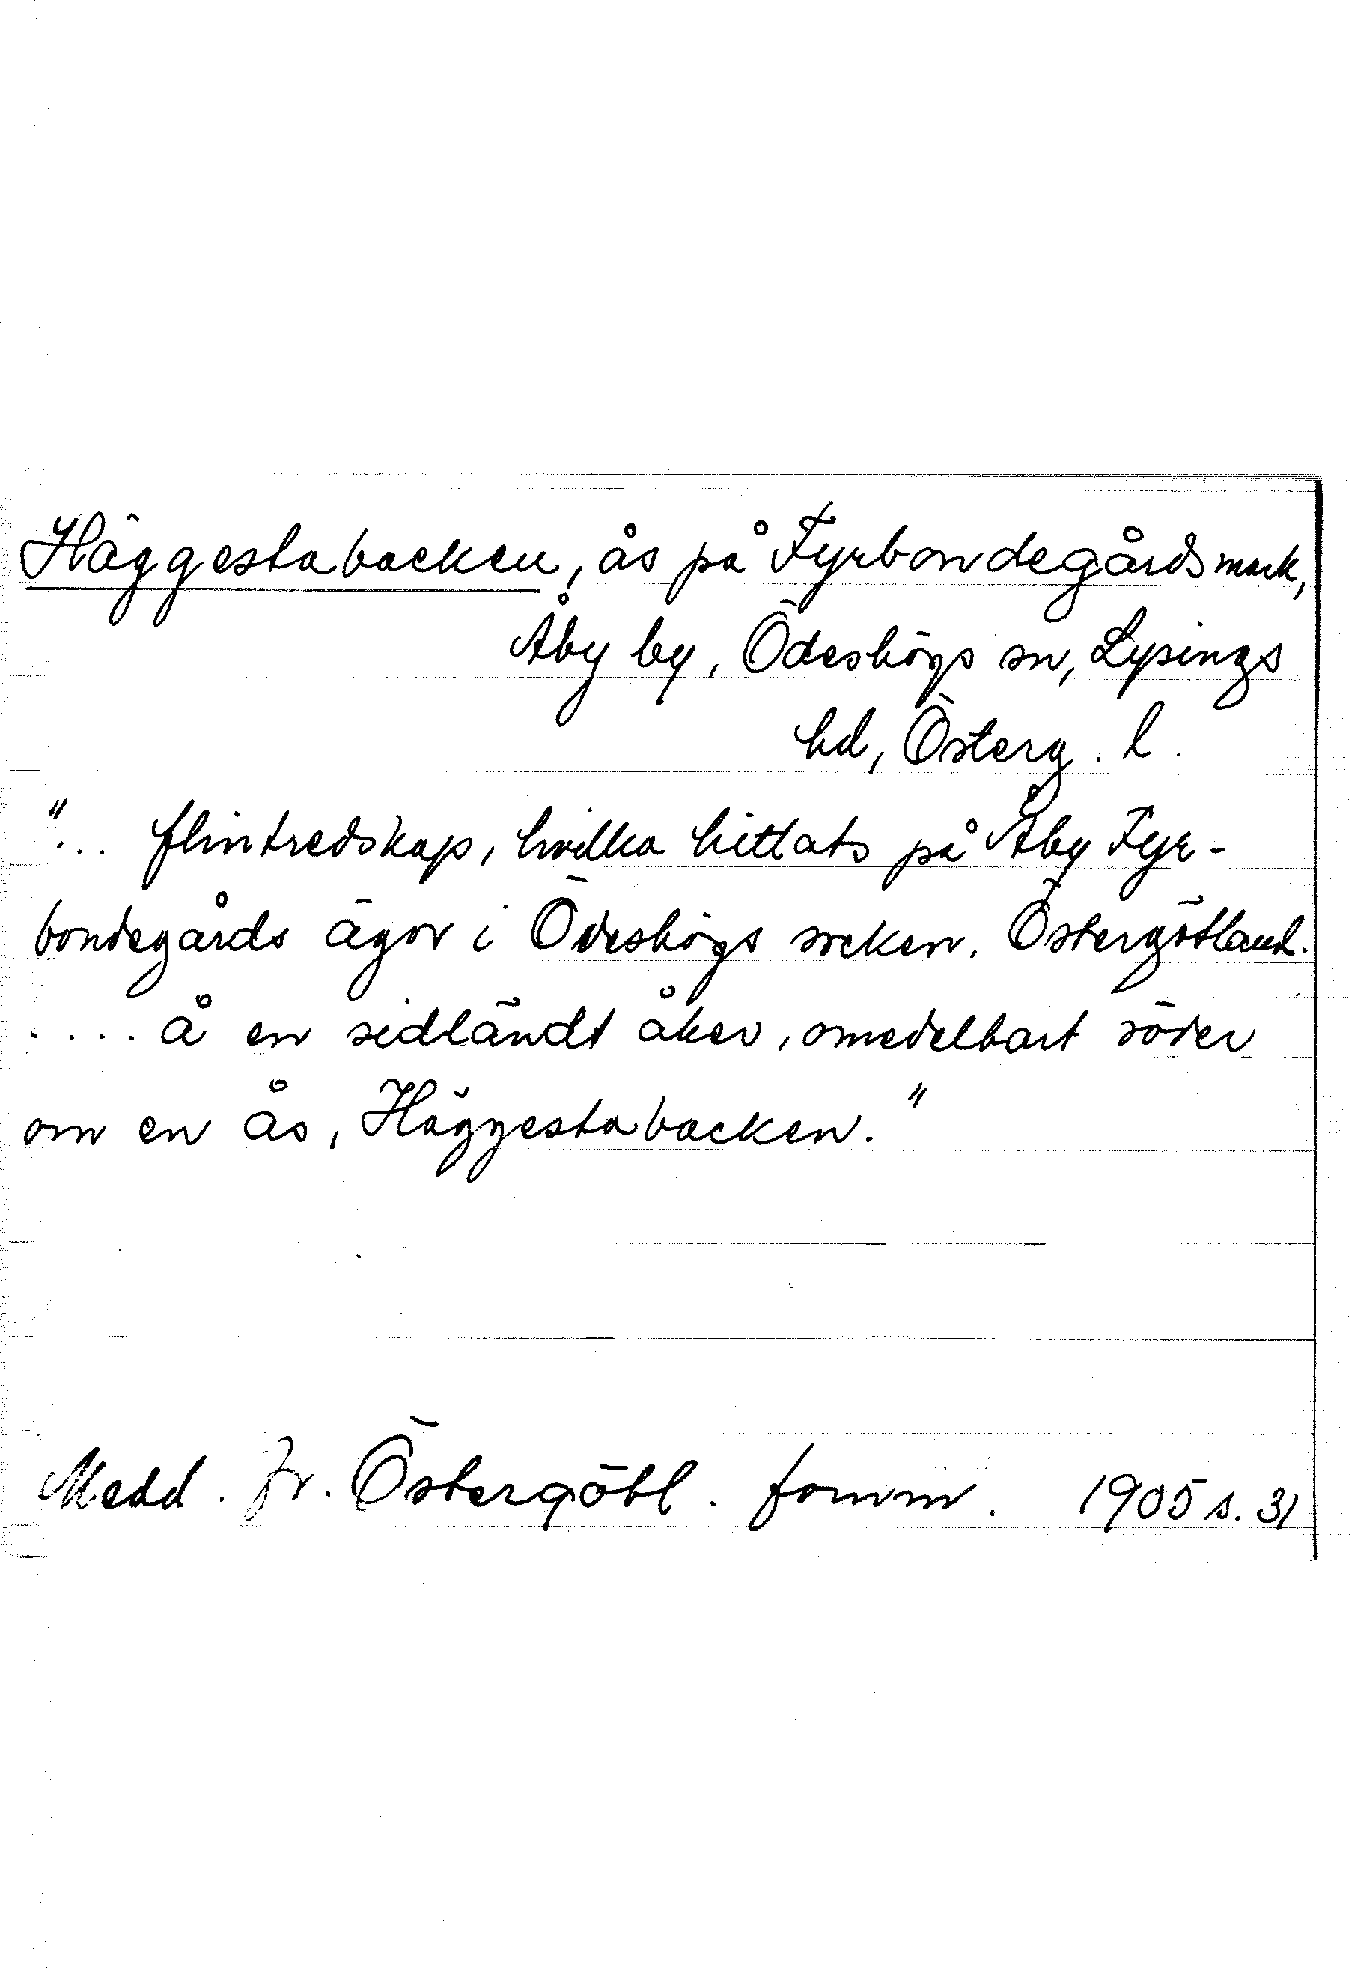 Häggestabacken, ås på Fyrbondegårds mark,
Åby by, Ödeshögs sn, Lysings
hd, Österg. l.
"... flintredskap, hvilka hittats på Åby Fyr-
bondegårds ägor i Ödeshögs socken, Östergötland.
.... å en sidländt åker, omedelbart söder
om en ås, Häggestabacken."
Medd. fr. Östergötl. fornm. 1905 s. 31